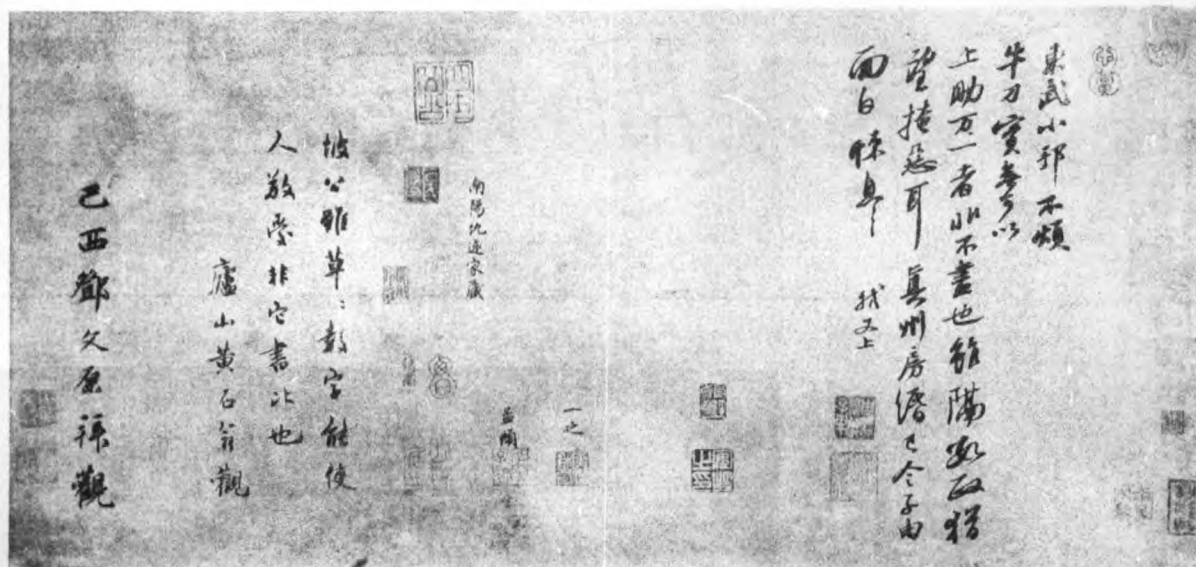 東武小邦不煩
牛刀實無可以
上助万一者非不盡也雖隔數政猶
望掩惡耳真州房緡已令子由
面白悚息 軾又上
一之
南陽仇遠家藏
坡公雖草〻數字能使
人敬愛非它書比也
廬山黃石翁觀
己酉鄧文原拜觀